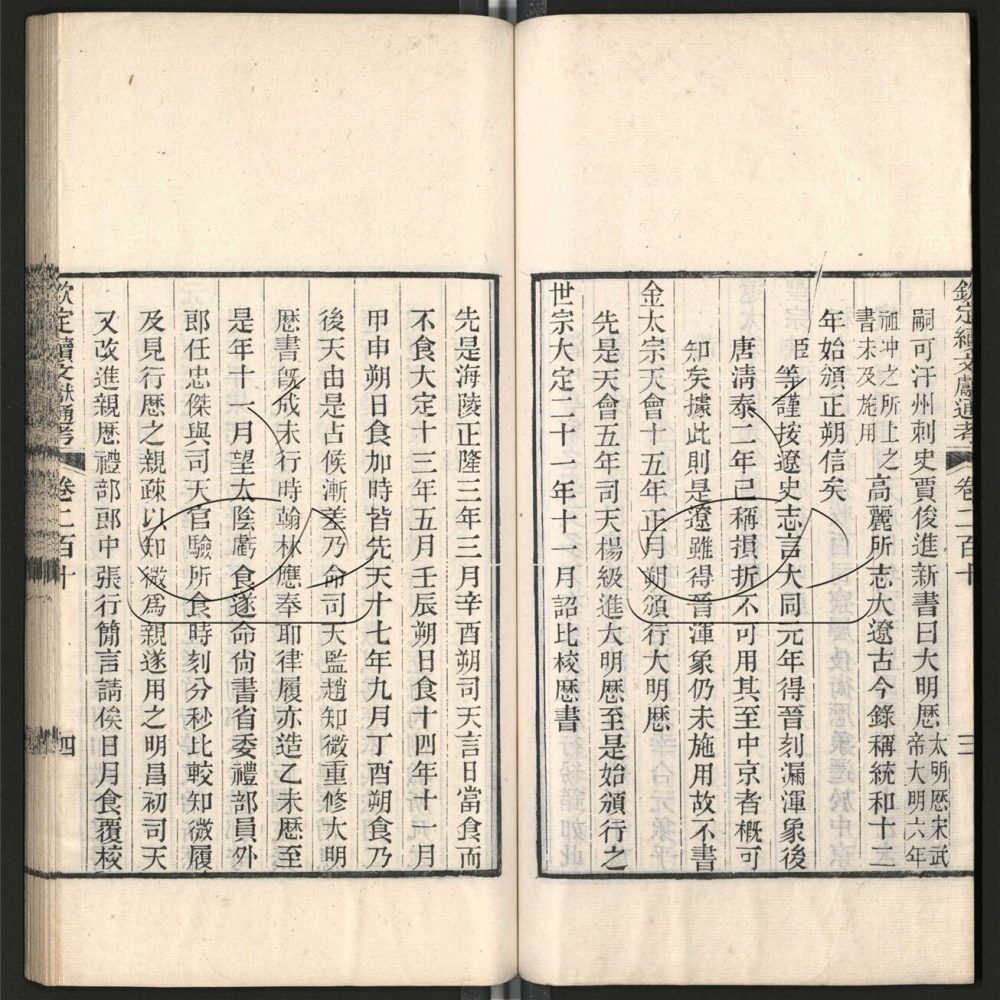 欽定續文獻通考 卷二百十 三
嗣可汗州刺史賈俊進新書曰大明厯太明厯宋武帝大明六年
祖冲之所上之書未及施用 高麗所志大遼古今錄稱統和十二
年始頒正朔信矣
臣等謹按遼史志言大同元年得晉刻漏渾象後
唐清泰二年已稱損折不可用其至中京者概可
知矣據此則是遼雖得晉渾象仍未施用故不書
金太宗天會十五年正月朔頒行大明厯
先是天會五年司天楊級進大明厯至是始頒行之
世宗大定二十一年十一月詔比校厯書
先是海陵正隆三年三月辛酉朔司天言日當食而
不食大定十三年五月壬辰朔日食十四年十一月
甲申朔日食加時皆先天十七年九月丁酉朔食乃
後天由是占候漸差乃命司天監趙知微重修大明
厯書旣成未行時翰林應奉耶律履亦造乙未厯至
是年十一月望太陰虧食遂命尙書省委禮部員外
郎任忠傑與司天官驗所食時刻分秒比較知微履
及見行厯之親疎以知微爲親遂用之明昌初司天
又改進親厯禮部郎中張行簡言請俟日月食覆校
欽定續文獻通考 卷二百十 四